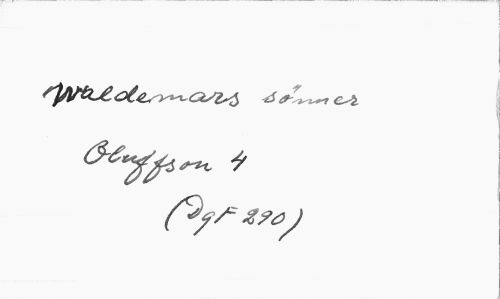 Waldemars sönner
Oluffson 4
(DgF 290)